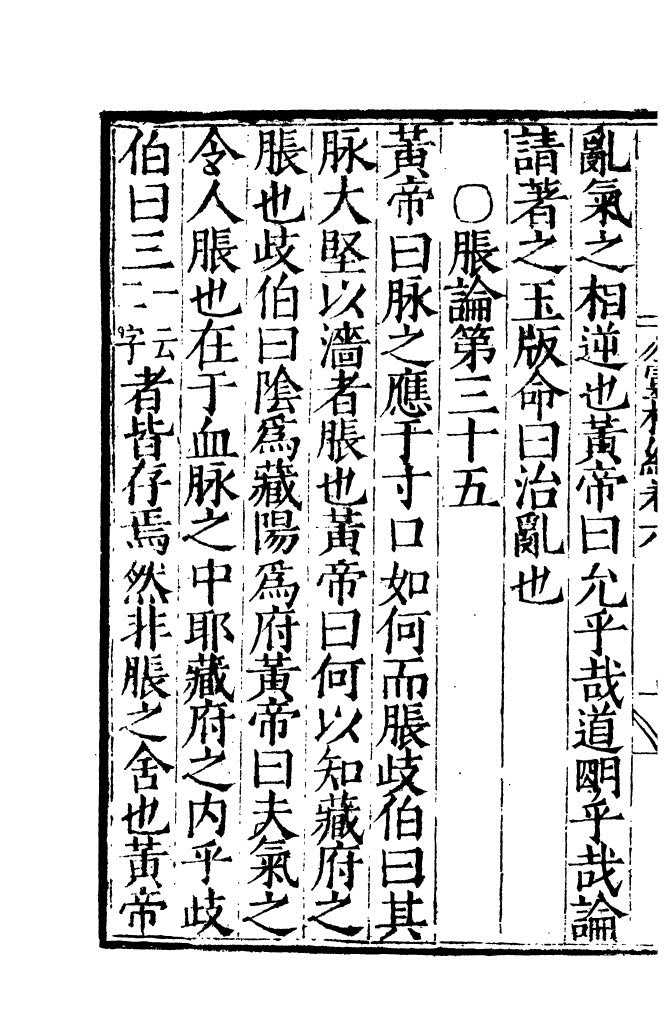 亂氣之相逆也黃帝曰允乎哉道明乎哉論
請著之玉版命曰治亂也
○脹論第三十五
黃帝曰脉之應于寸口如何而脹歧伯曰其
脉大堅以濇者脹也黃帝曰何以知藏府之
脹也歧伯曰陰爲藏陽爲府黃帝曰夫氣之
令人脹也在于血脉之中耶藏府之内乎歧
伯曰三一云二字者皆存焉然非脹之舍也黃帝